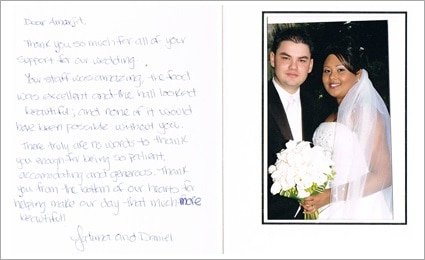 Dear Amarjit,
Thank you so much for all of your
support for our wedding.
Your staff was amazing, the food
was excellent and the hall looked
beautiful, and none of it would
have been possible without you.
There truly are no words to thank
you enough for being so patient,
accomodating and generous. Thank
you from the bottom of our hearts for
helping make our day that much more
beautiful!
and Daniel